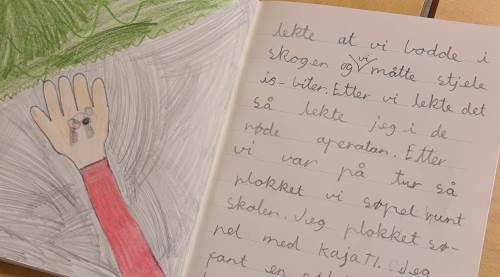 lekte at vi bodde i
skogen og vi måtte stjele
is-biter. Etter vi lekte det
så lekte jeg i de
røde aperatan. Etter
vi var på tur så
plokket vi søpel runt
skolen. Jeg plokket sø-
pel med kajaTl. Jeg
fant en